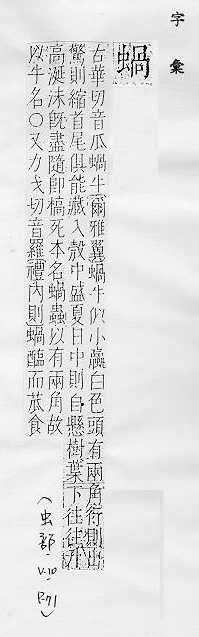 字彙
蝸
古華切音瓜蝸牛爾雅翼蝸牛似小蠃白色頭有兩角行則出
驚則縮首尾俱能藏入殼中盛夏日中則自懸樹葉下往往升
高涎沫既盡隨即槁死本名蝸蟲以有兩角故
以牛名○又力戈切音羅禮內則蝸醢而苽食
(虫部 V.10 P.71)